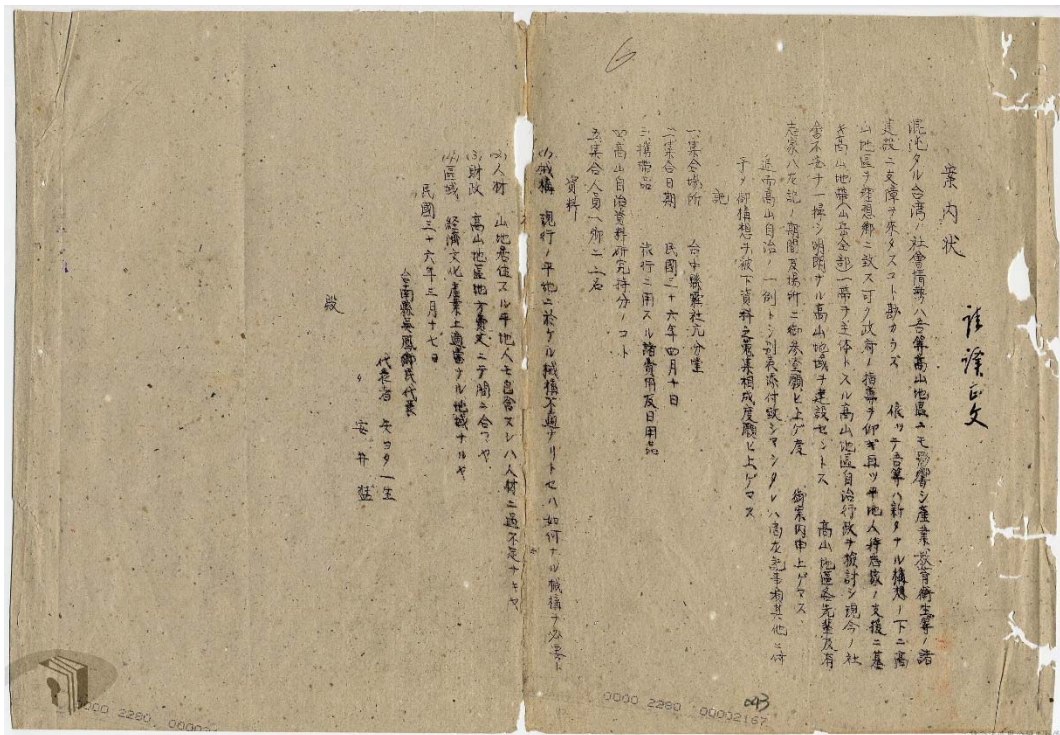 請譯正文
案内状
混沌タル台湾ノ社會情勢ハ吾等高山地區ニモ影響シ産業、教育衛生等ノ諸
建設ニ支障ヲ来タスコト尠カラズ 依ッテ吾等ハ新タナル構想ノ下ニ高
山地區ヲ理想郷ニ致ス可ク政府ノ指導ヲ仰ギ且ツ平地人特志家ノ支援ニ基
キ高山地帶(山岳全部)一帶ヲ主体トスル高山地區自治行政ヲ檢討シ現今ノ社
會不安ヲ一掃シ明朗ナル高山地域ヲ建設セントス 高山地區各先輩及有
志家ハ左記ノ期間及場所ニ御参立願ヒ上ゲ度 御案内申上ゲマス
進而高山自治ノ一例トシ別表添付致シマシタレハ尚左記事項其他ニ付
テノ御構想ヲ被下資料之蒐集相成度願ヒ上ゲマス
記
一、集合場所 台中縣霧社充分堂
二、集合日期 民國三十六年四月十日
三、携帶品 旅行ニ用スル諸費用及日用品
四、高山自治資料研究持分ノコト
五、集合人員 一郷ニ二名
資料
(1) 械構 現行ノ平地ニ於ケル械構不適ナリトセハ如何ナル械構ヲ必要ト
(2) 人材 山地居住スル平地人モ包含スレハ人材ニ過不足ナキヤ
(3) 財政 高山地區地方費支ニテ間ニ合フヤ
(4) 區域 経濟文化産業上適當ナル地域ナルヤ
民國三十六年三月十七日
台南縣吳鳳郷民代表
代表者 矢ヨタ一生
〃 安井 猛
殿
6
043
0000 2280 00002167
0000 2280